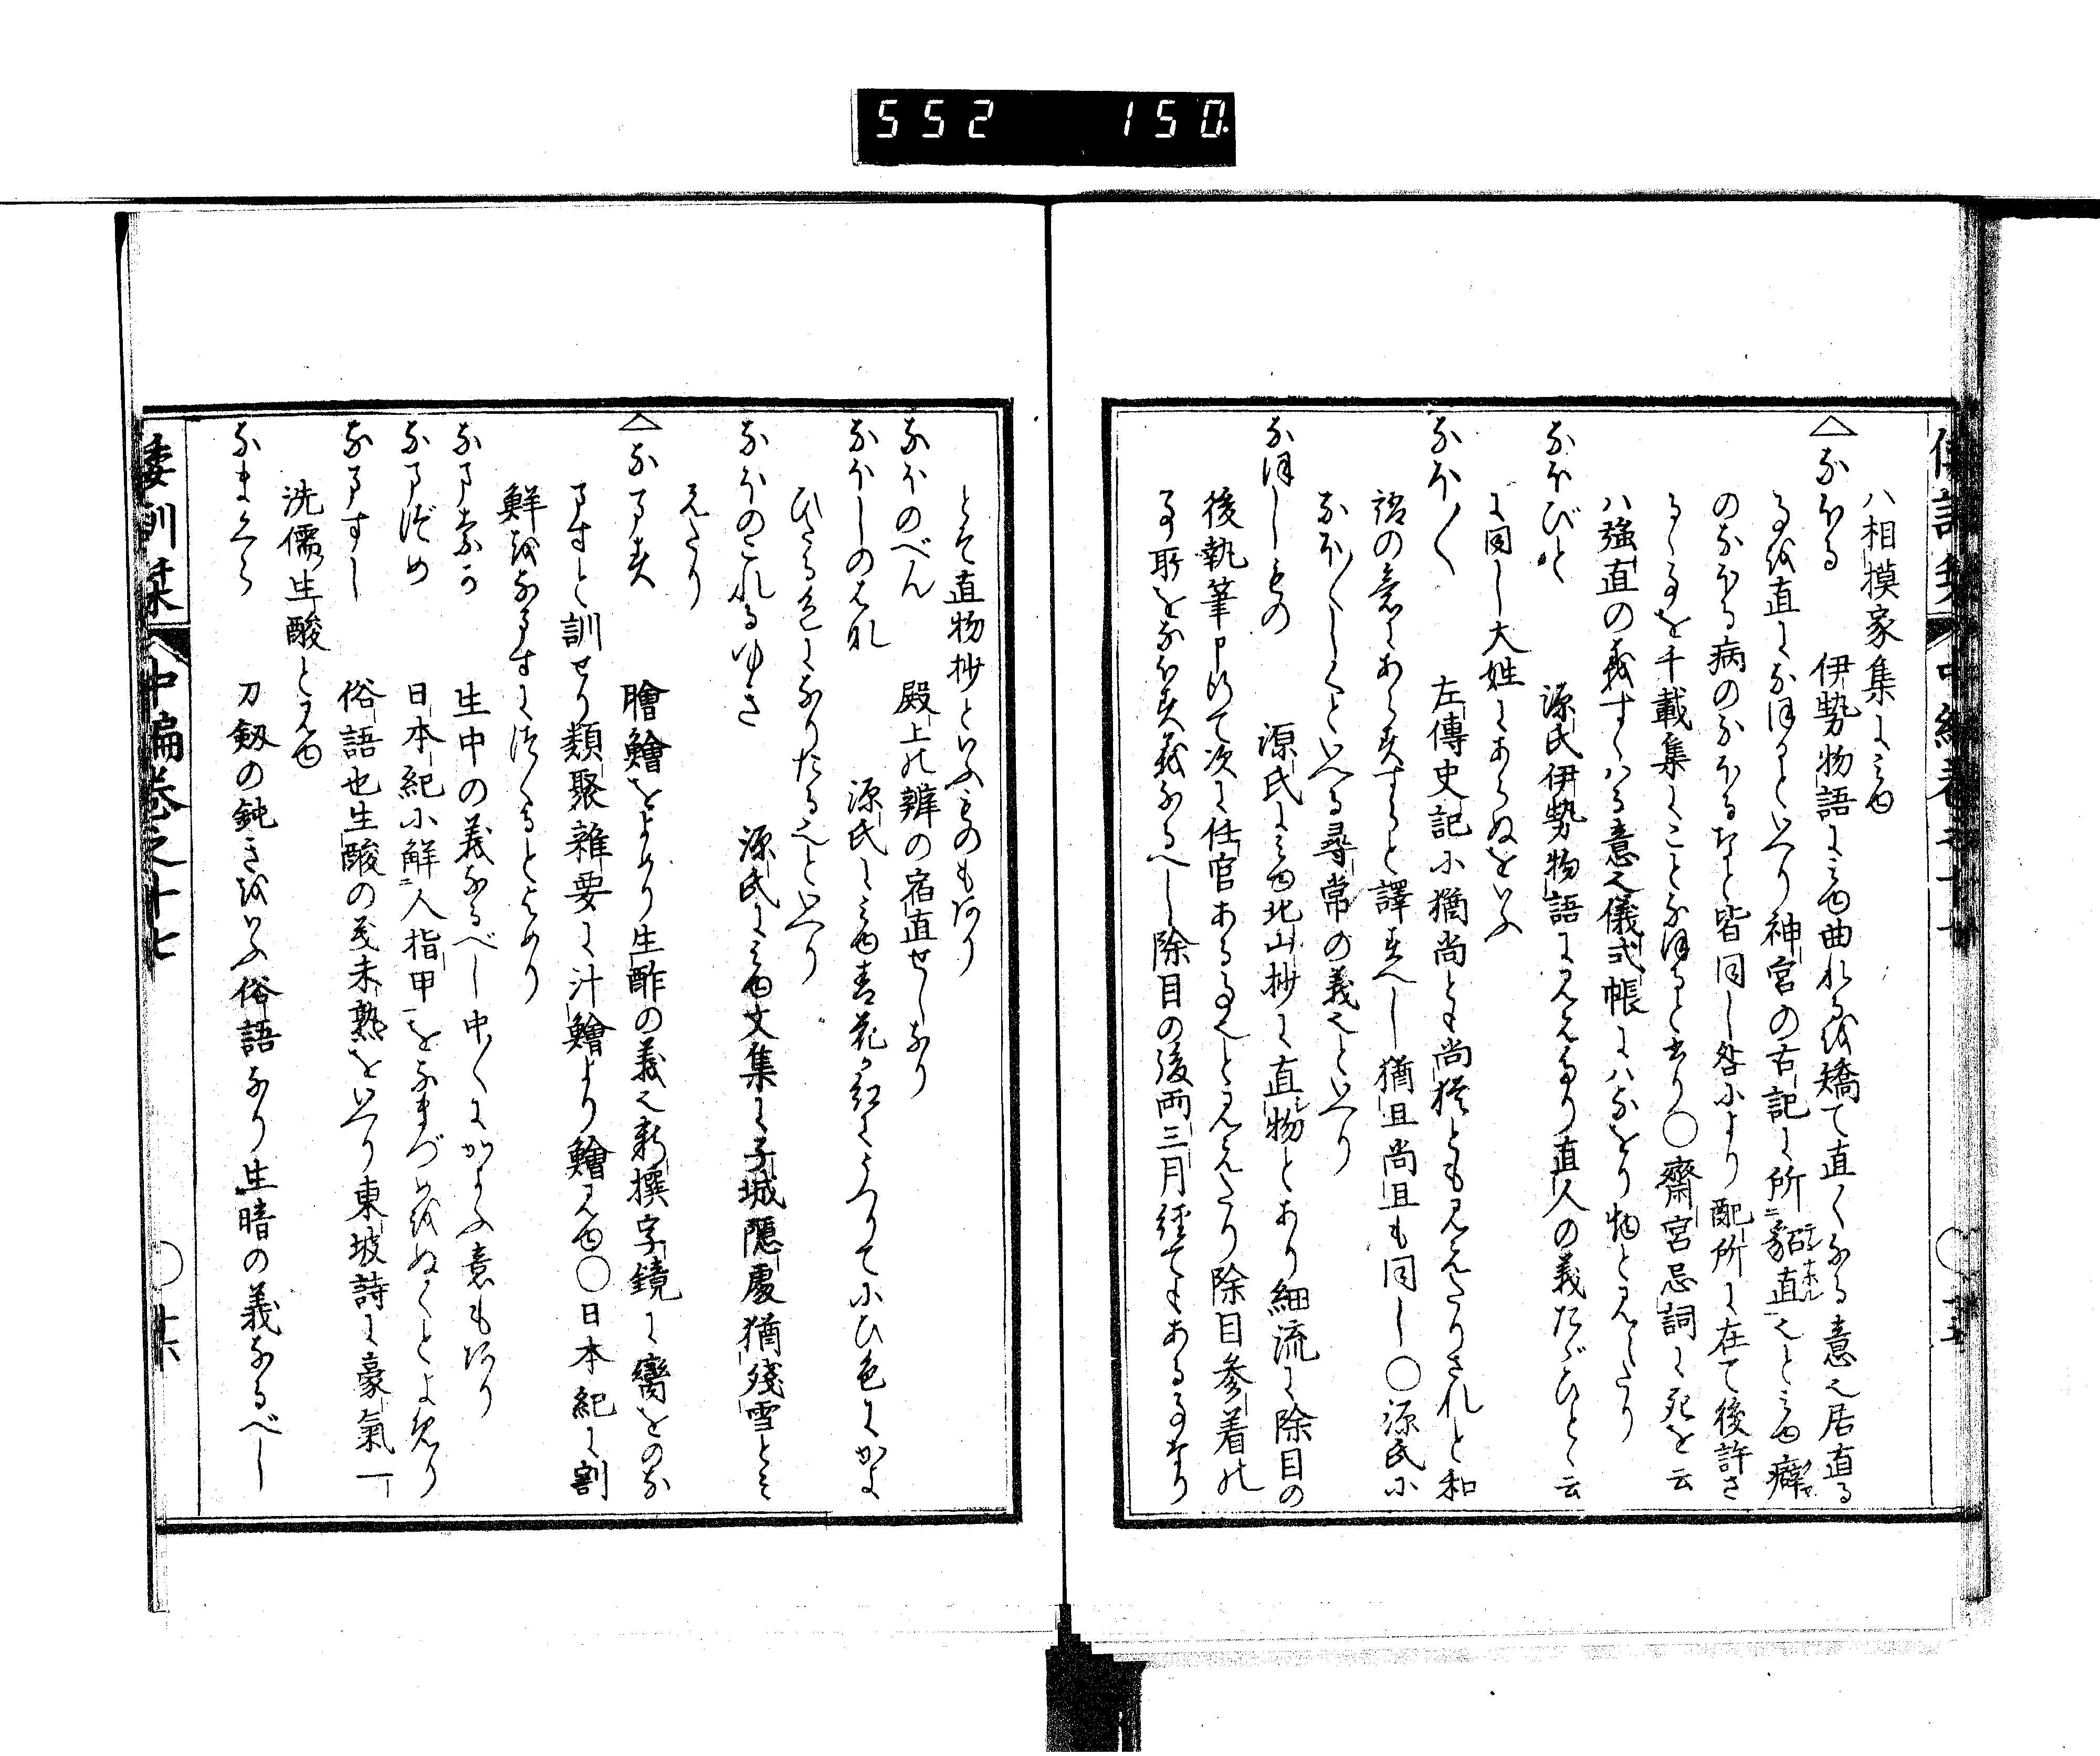 552 150
八相摸家集に見ゆ
△なほる 伊勢物語に見ゆ曲れるを矯て直くなる意也居直る
るを直になほるといへり神宮の古記に所貂直也と見ゆ癖
のなほる病のなほるなと皆同し咎により配所に在て後許さ
るゝるを千載集にことなほると云り〇齋宮忌詞に死を云
ハ強直の義すくはる意也儀式帳にハなをり物と見えたり
なほびと 源氏伊勢物語に見えたり直人の義たゞひとゝ云
に同し大姓にあらぬをいふ
なほ〱 左傳史記に猶尚とも尚猶とも見えたりされと和
語の意にあらすすらと譯すへし猶且尚且も同し〇源氏に
なほ〱しくといへる尋常の義也といへり
なほしもの 源氏に見ゆ北山抄に直物とあり細流に除目の
後執筆申行て次に任官ある事也と見えたり除目参着の
事取をなほす義なるへし除目の後両三月経てもある事なり
とそ直物抄といふものもあり
なほのべん 殿上の辨の宿直せしなり
なほしのはな 源氏に見ゆ青花の紅にうつりて小ひ色にかよ
ひたる色になりたる也といへり
なほのこれるゆき 源氏に見ゆ文集に子城隱處猶殘雪とみ
えたり
△なます 膾鱠をよめり生酢の義也新撰字鏡に臠をのな
ますと訓せり類聚雑要に汁鱠より鱠見ゆ〇日本紀に割
鮮をなますにつくるとよめり
なまなか 生中の義なるべし中〱にかよふ意もあり
なまづめ 日本紀に解ニ人指甲一をなまづめをぬくとよめり
なますし 俗語也生酸の義未熟をいへり東坡詩に豪氣一
洗儒生酸と見ゆ
なまくら 刀劔の鈍きをいふ俗語なり生暗の義なるべし
倭訓栞 中編巻之十七 〇 廿六